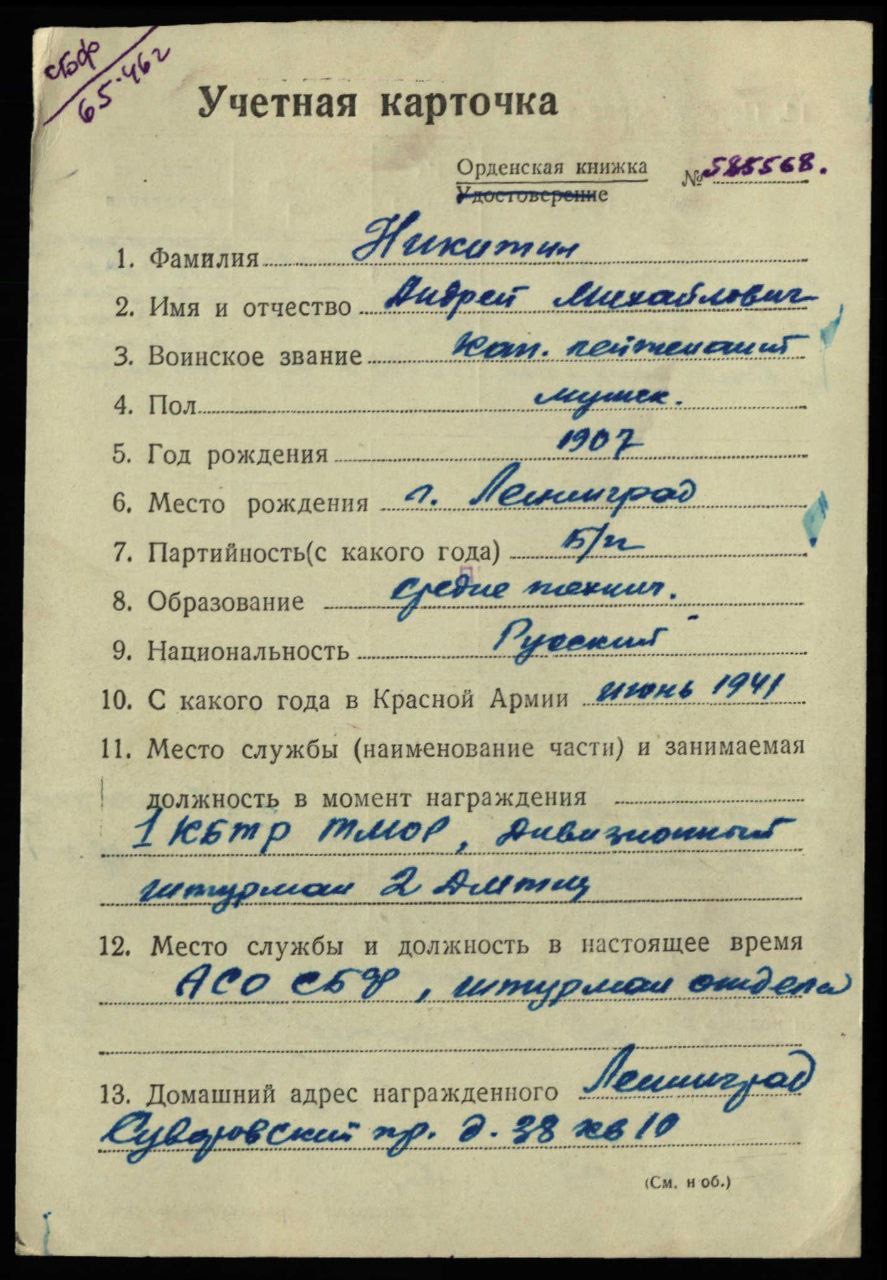 СБФ
6 5·46г
Учетная карточка
Орденская книжка
Удостоверение
№ 585568.
1. Фамилия Никитин
2. Имя и отчество Андрей Михайлович
3. Воинское звание Кап. лейтенант
4. Пол мужск.
5. Год рождения 1907
6. Место рождения г. Ленинград
7. Партийность(с какого года) Б/п
8. Образование средне технич.
9. Национальность Русский
10. С какого года в Красной Армии июнь 1941
11. Место службы (наименование части) и занимаемая
должность в момент награждения
1 КБТР ТМОР, дивизионный
штурман 2 ДМТЩ
12. Место службы и должность в настоящее время
АСО СБФ, штурман отдела
13. Домашний адрес награжденного Ленинград
Суворовский пр. д. 38 кв 10
(См. н об.)